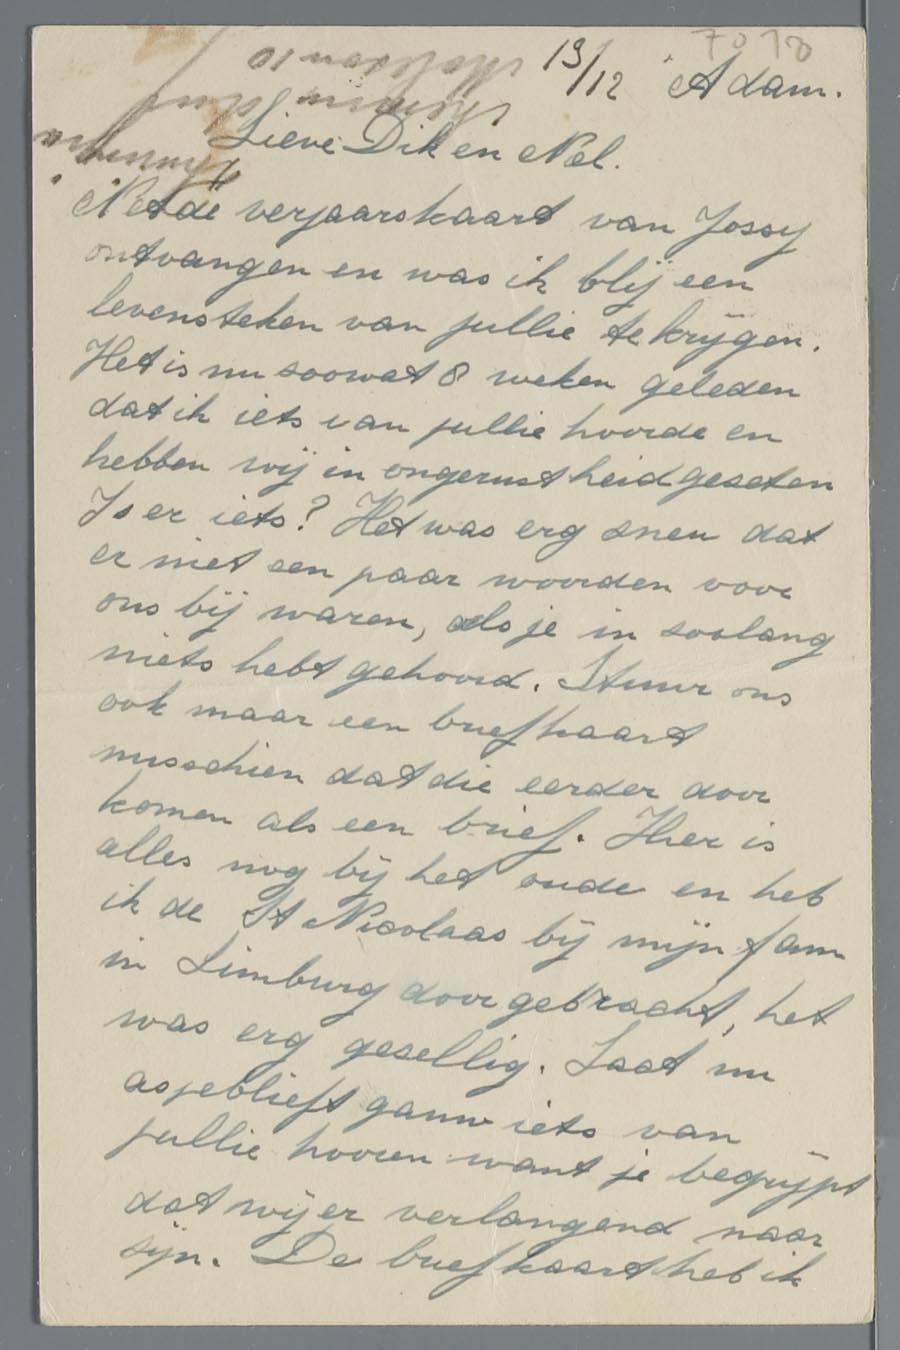 7070
19/12 A dam.
Lieve Dik en Nel.
Net de verjaarskaart van Jossy
ontvangen en was ik blij een
levensteken van jullie te krijgen.
Het is nu soowat 8 weken geleden
dat ik iets van jullie hoorde en
hebben wij in ongerustheid geseten
Is er iets? Het was erg snen dat
er niet een paar woorden voor
ons bij waren, als je in soolang
niets hebt gehoord. Stuur ons
ook maar een briefkaart
misschien dat die eerder door
komen als een brief. Hier is
alles nog bij het oude en heb
ik de St Nicolaas bij mijn fam
in Limburg doorgebracht, het
was erg gesellig. Laat nu
asjeblieft gauw iets van
jullie hooren want je begrijpt
dat wij er verlangend naar
sijn. De briefkaart heb ik